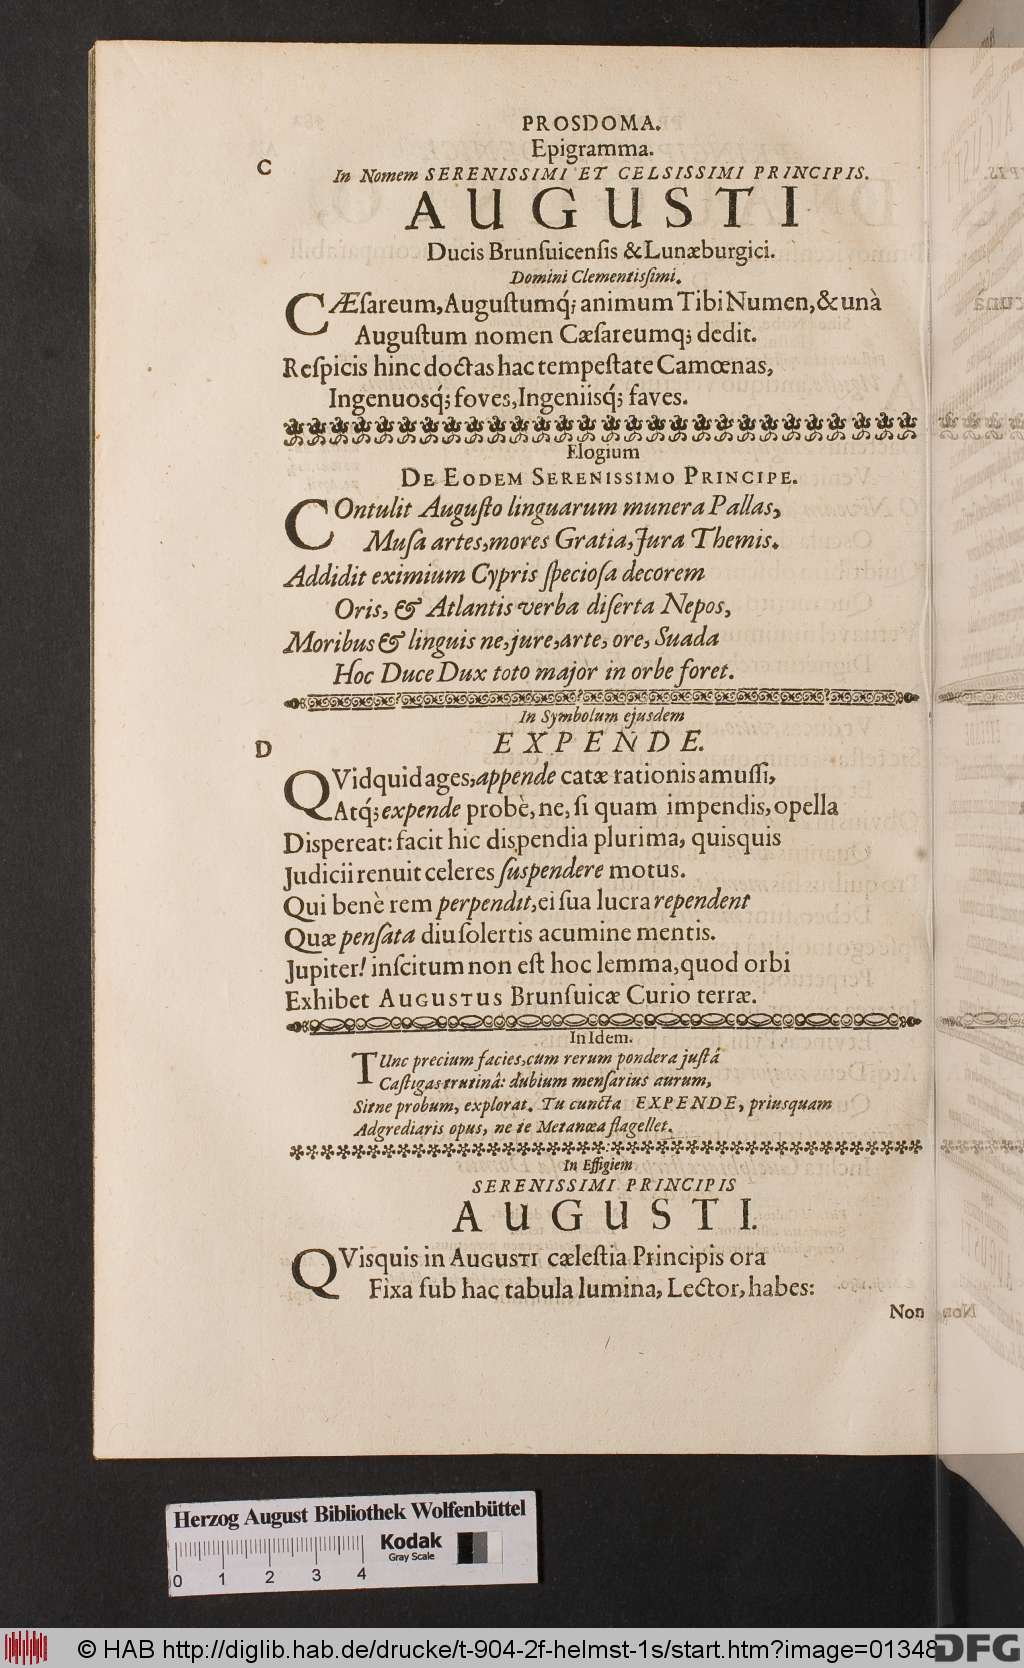 PROSDOMA.
Epigramma.
C
In Nomem SERENISSIMI ET CELSISSIMI PRINCIPIS.
AUGUSTI
Ducis Brunſuicenſis & Lunæburgici.
Domini Clementiſſimi.
CÆſareum, Auguſtumq́; animum Tibi Numen, & unà
Auguſtum nomen Cæſareumq; dedit.
Reſpicis hinc doctas hac tempeſtate Camœnas,
Ingenuosq́; foves, Ingeniisq́; faves.
Elogium
DE EODEM SERENISSIMO PRINCIPE.
COntulit Auguſto linguarum munera Pallas,
Muſa artes, mores Gratia, Jura Themis.
Addidit eximium Cypris ſpecioſa decorem
Oris, & Atlantis verba diſerta Nepos,
Moribus & linguis ne, jure, arte, ore, Suada
Hoc Duce Dux toto major in orbe foret.
In Symbolum ejusdem
D
EXPENDE.
QVidquid ages, appende catæ rationis amuſſi,
Atq́; expende probè, ne, ſi quam impendis, opella
Dispereat: facit hic dispendia plurima, quisquis
Judicii renuit celeres ſuspendere motus.
Qui benè rem perpendit, ei ſua lucra rependent
Quæ penſata diu ſolertis acumine mentis.
Jupiter! inſcitum non eſt hoc lemma, quod orbi
Exhibet AUGUSTUS Brunſuicæ Curio terræ.
In Idem.
TUnc precium facies, cum rerum pondera juſtâ
Caſtigas trutinâ: dubium menſarius aurum,
Sitne probum, explorat. Tu cuncta EXPENDE, priusquam
Adgrediaris opus, ne te Metanœa flagellet.
In Effigiem
SERENISSIMI PRINCIPIS
AUGUSTI.
QVisquis in AUGUSTI cæleſtia Principis ora
Fixa ſub hac tabula lumina, Lector, habes:
Non
Herzog August Bibliothek Wolfenbüttel
Kodak
Gray Scale
0 1 2 3 4
© HAB http://diglib.hab.de/drucke/t-904-2f-helmst-1s/start.htm?image=01348
DFG